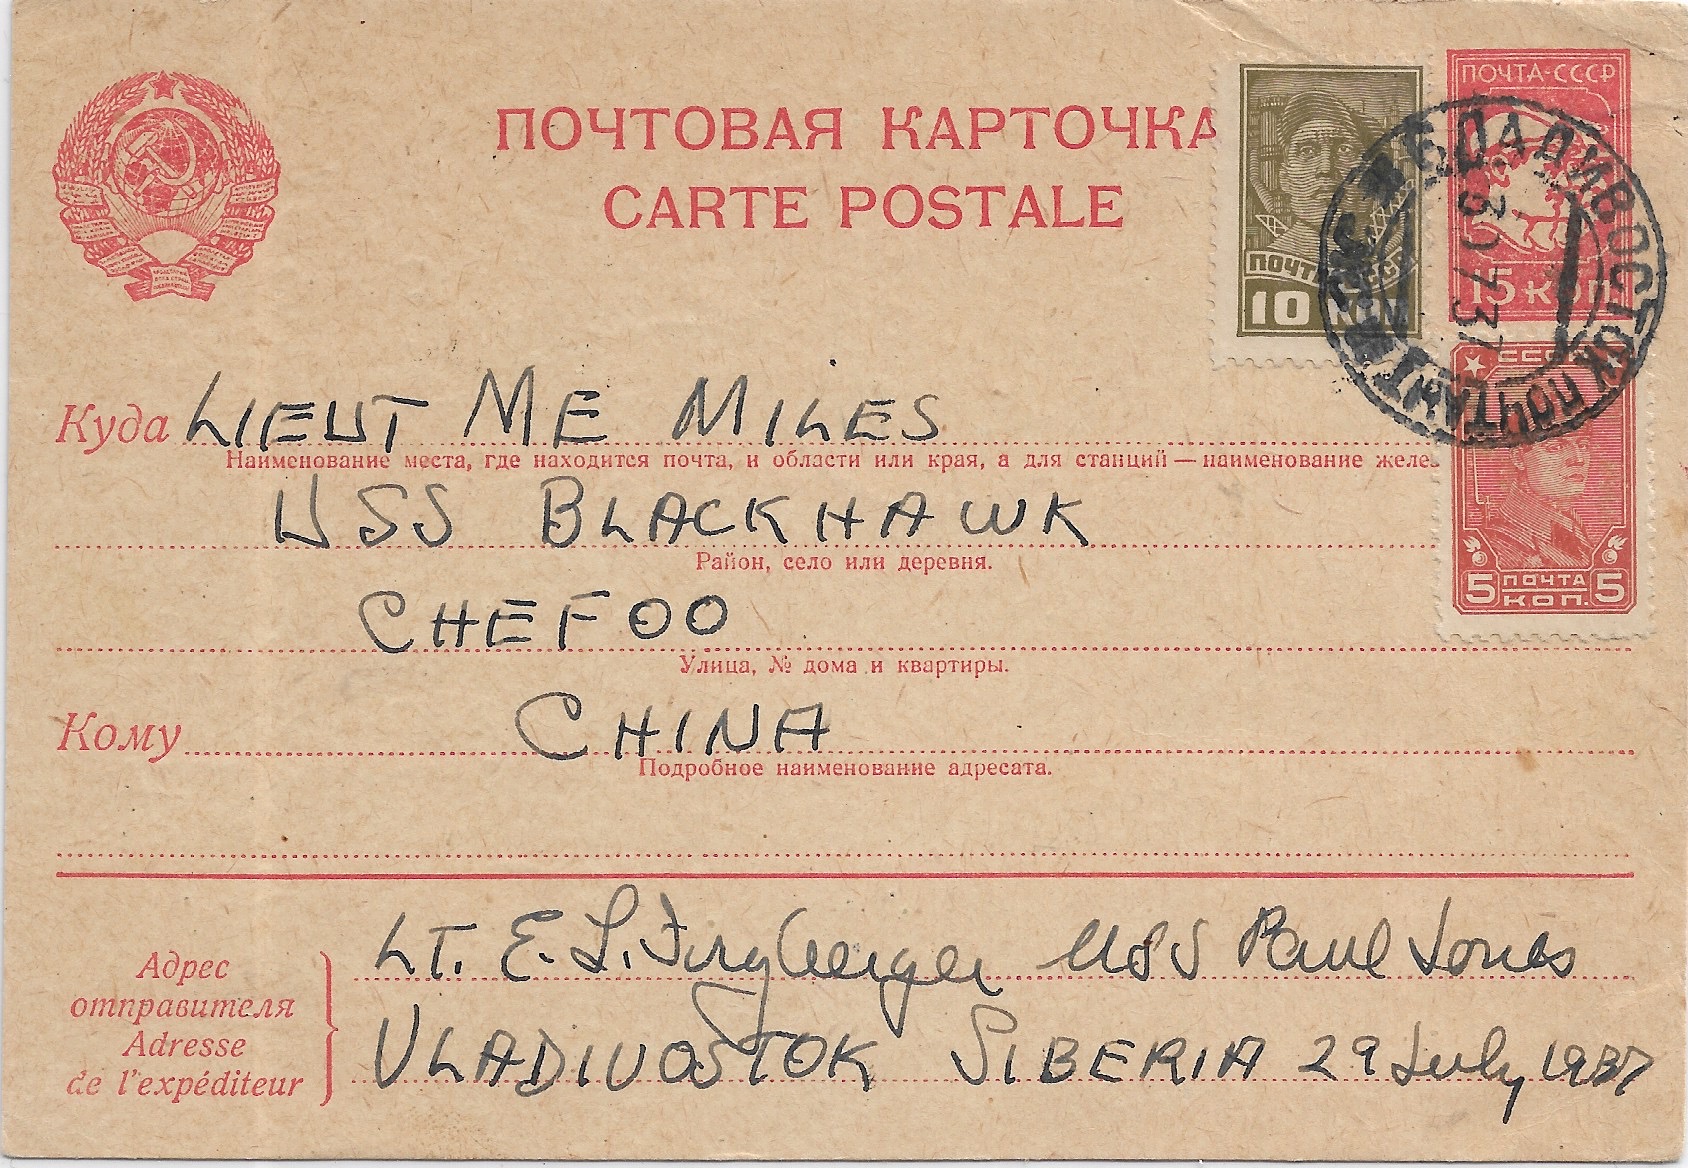 ПОЧТОВАЯ КАРТОЧКА
CARTE POSTALE
ПОЧТА
10 КОП
ПОЧТА-СССР
15 КОП
ВЛАДИВОСТОК ПОЧТАМТ
29 7 37
СССР
5 ПОЧТА КОП. 5
Куда LIEUT ME MILES
Наименование места, где находится почта, и области или края, а для станций — наименование желез
USS BLACKHAWK
Район, село или деревня.
CHEFOO
Улица, № дома и квартиры.
Кому CHINA
Подробное наименование адресата.
Адрес
отправителя
Adresse
de l'expéditeur
LT. E. L. USS Paul Jones
VLADIVOSTOK SIBERIA 29 July 1937